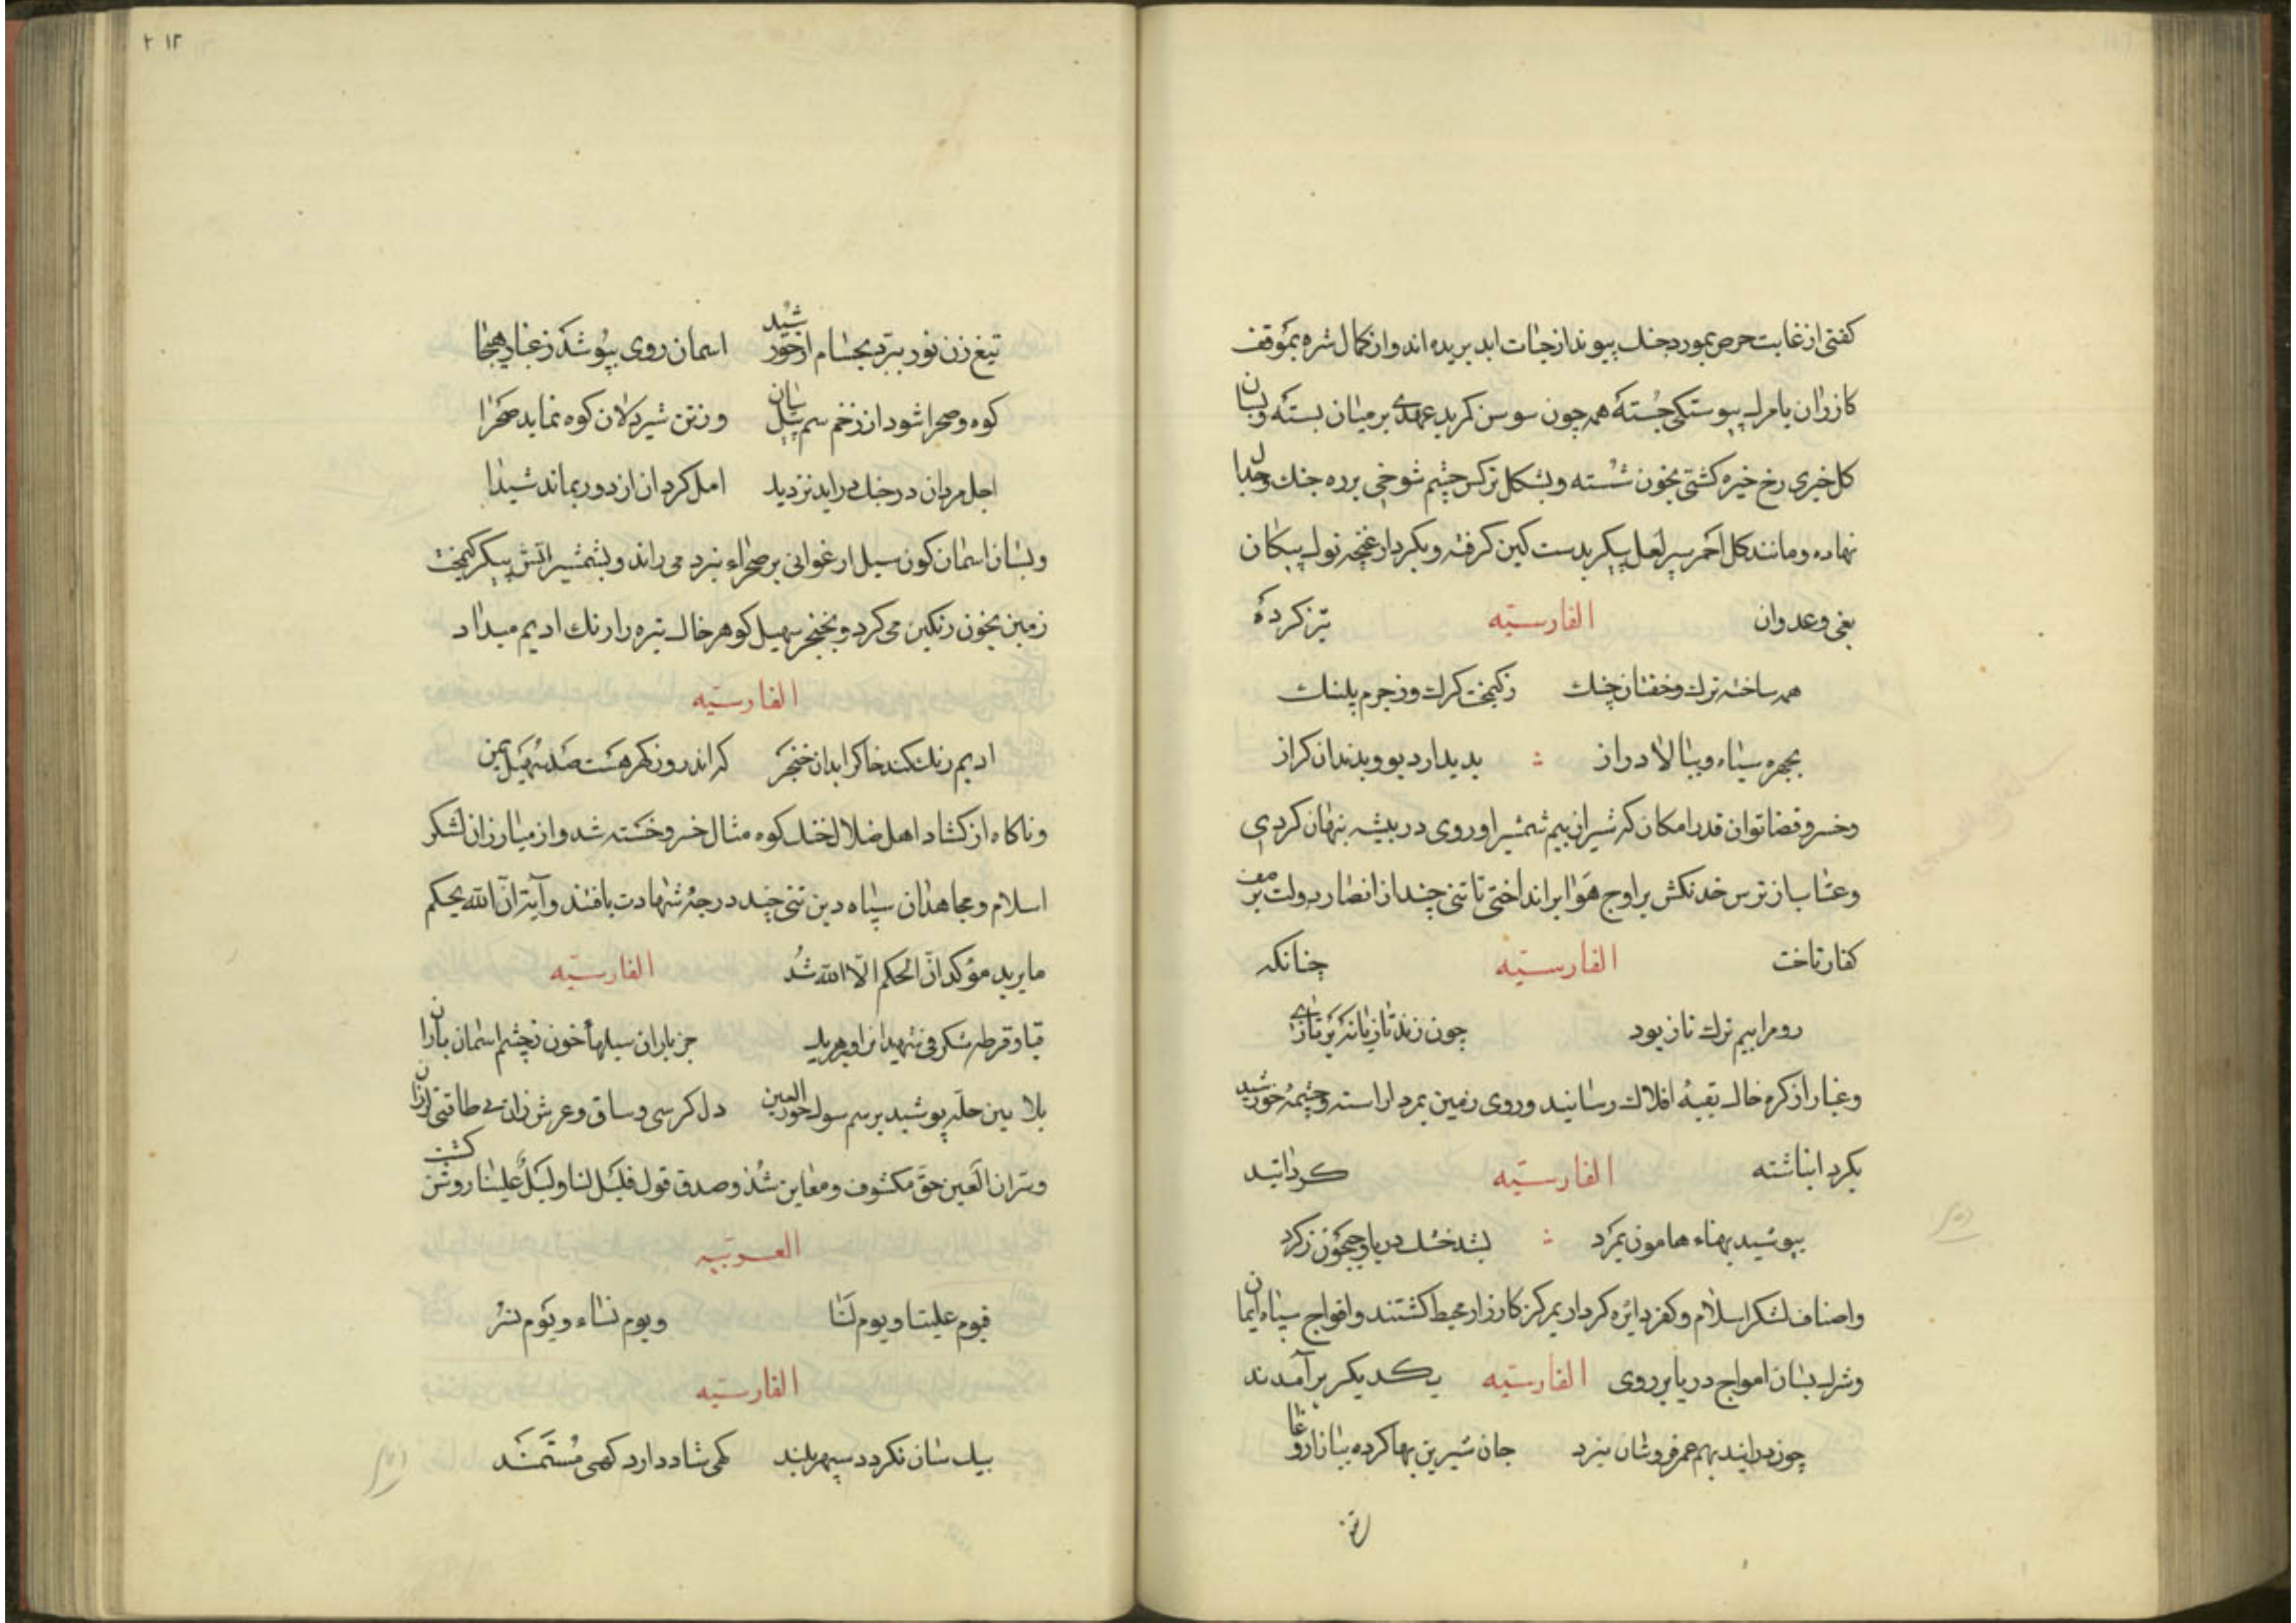 کفتی از غایت حرص بمورد جنک پیوند از جات ابد بریده اند و از کمال شره بموقف
کارزار با مرک پیوستکی جسته همه چون سوسن کمر بد عهدی بر میان بسته و بسان
کل خیری رخ خیره کشتی بخون شسته و بشکل نرکس چشم شوخی بر ره جنک و جدال
نهاده و مانند کل احمر سپر لعل پیکر بدست کین کرفته و بکردار غنچه نوک پیکان
بغی و عدوان الفارسیّه تیز کرده
همه ساخته ترک و خفتان جنک زکیمخت کرک و ز جرم پلنک
بچهره سیاه و ببالا دراز بدیدار دیو و بدندان کراز
و خسرو قضا توان قدر امکان که شیر از بیم شمشیر او روی در بیشه پنهان کردی
و عقاب از ترس خدنکش بر اوج هوا پر انداختی تا تنی چند از انصار دولت بر صف
کفار تاخت الفارسیّه چنانکه
روم را بیم ترک تاز بود چون زند تازیانه بر تازی
و غبار از کره خاک بقبهٔ افلاک رسانید و روی زمین بمرد اراسته و چشمهٔ خورشید
بکرد انباشته الفارسیّه کردانید
بپوشید پهناء هامون بمرد بشد خشک دریا و جیحون زکرد
و اصناف لشکر اسلام و کفر دایره کردار بمرکز کارزار محیط کشتند و افواج سپاه ایمان
و شرک بسان امواج دریا بر روی الفارسیّه یکدیکر برآمدند
چون درایند بهم عمر فروشان نبرد جان شیرین بها کرده ببازار وغا
تیغ زن نور ببرد بحسام از خورشید اسمان روی بپوشد ز غبار هیجا
کوه و صحرا شود از زخم سم پیلان وز تن شیردلان کوه نماید صحرا
اجل مردان در جنک دراید نزدیک امل کردان از دور بماند شیدا
و بسان اسمان کون سیل ارغوانی بر صحراء نبرد می راند و بشمشیر اتش پیکر کیمخت
زمین بخون رنکین می کرد و بخنجر سهیل کوهر خاک تیره را رنک ادیم میداد
الفارسیّه
ادیم رنک کند خاک را بدان خنجر که اندرو ز کهر هست صد سهیل یمن
و ناکاه از کشاد اهل ضلال خنک کوه مثال خسرو خسته شد و از مبارزان لشکر
اسلام و مجاهدان سپاه دین تنی چند درجهٔ شهادت یافتند و آیة انّ الله یحکم
ما یرید مؤکد ان الحکم الّا لله شد الفارسیّه
قبا و قرطه شکرفی شهیدانرا جز باران سیلها خون ز چشم اسمان باران
بلا بین حلّه پوشید بر سم سوک حور العین دل کرسی و ساق و عرش زان بی طاقتی لرزان
و سرّ ان العین حق مکشوف و معاین شد و صدق قول فلیک لنا ولیک علینا روشن کشت
العربیّه
فیوم علینا و یوم لنا و یوم نساء و یوم نسرّ
الفارسیّه
بیک سان نکردد سپهر بلند کهی شاد دارد کهی مستمند